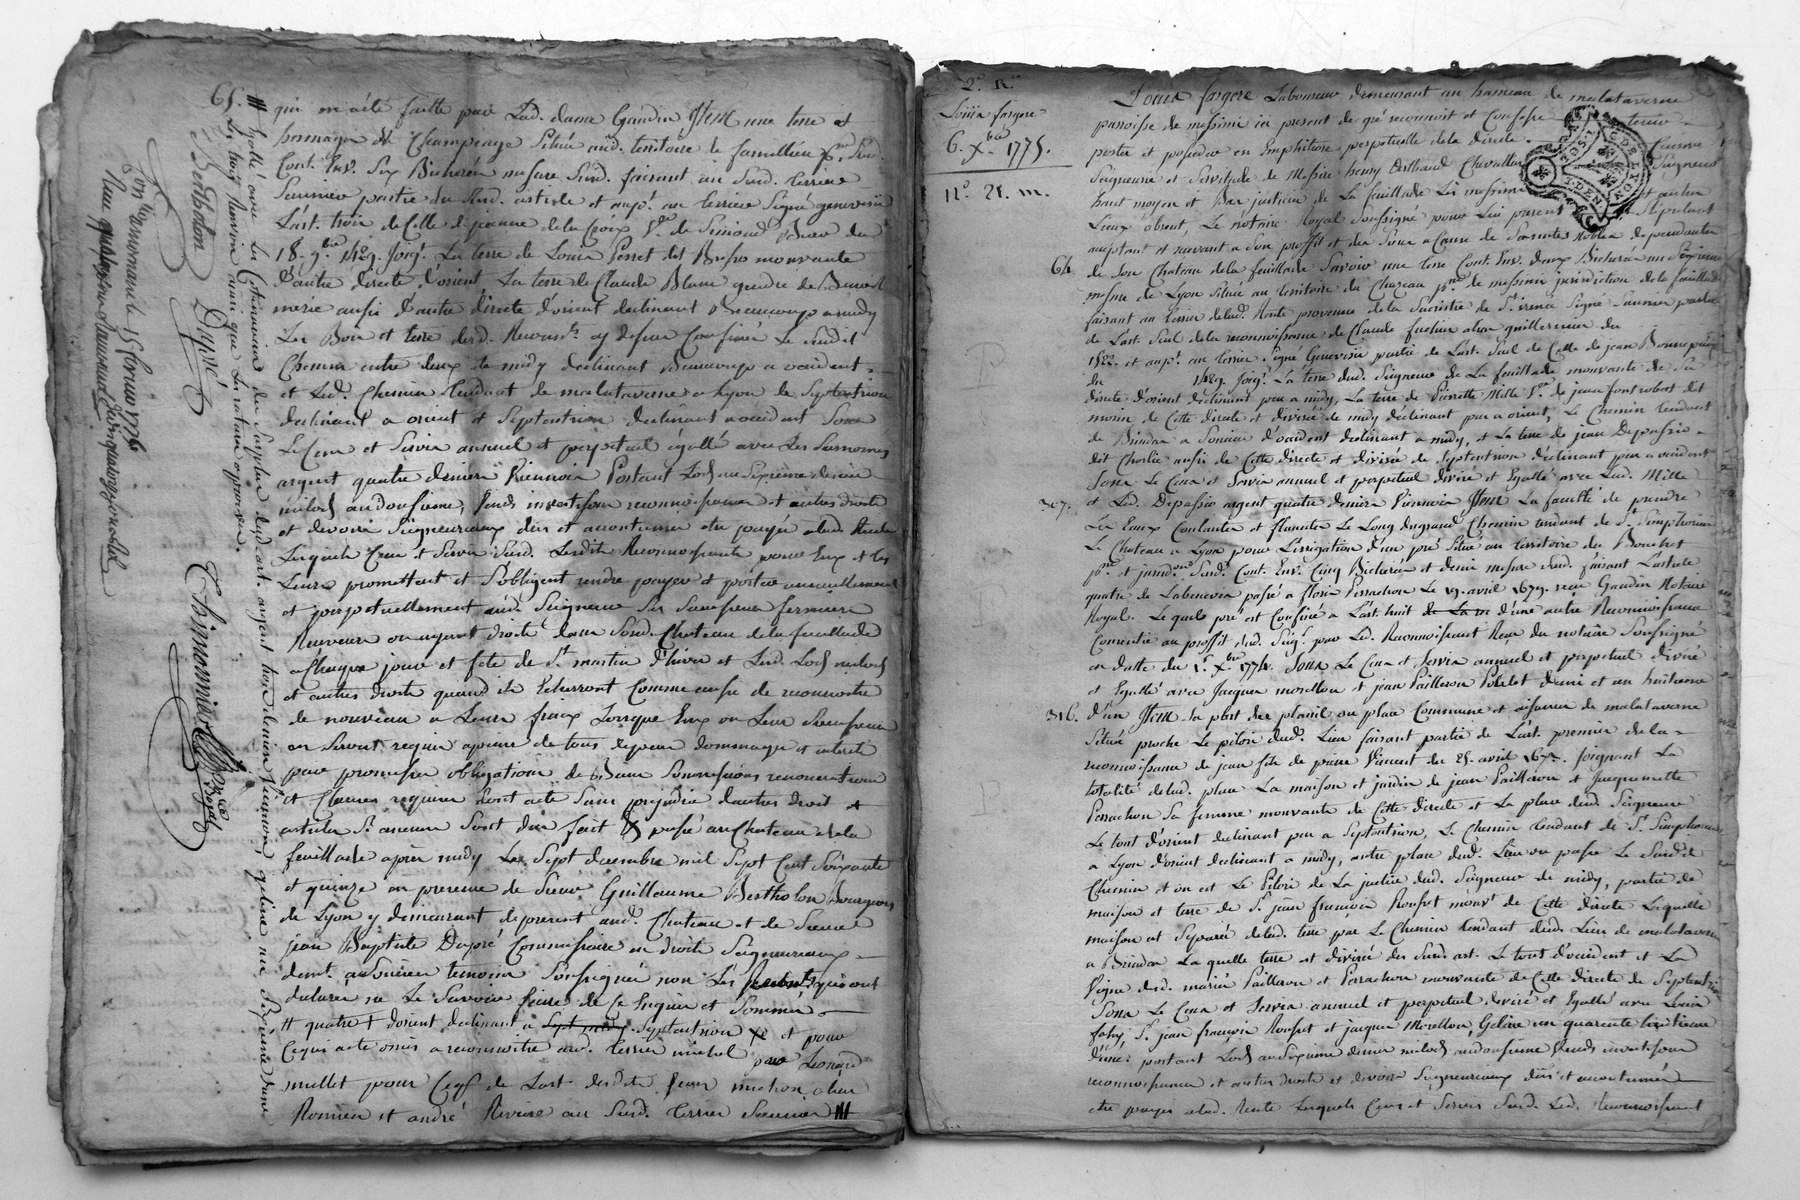 65.
qui en a été faitte par Lad. dame Gaudin Item une terre et
hermage de Champeage Située aud. territoire le famillieu
Cont. Env. Six Bicherées mesure Susd. faisant au Susd. terrier
Saunier partie du Susd. article et aup.t au terrier Signé genevrier
L'art. trois de Celle de jeanne de la Croix V.e de
18. 9.bre 1429. Joig.t La terre de Louis Perret dit mouvante
d'autre directe d'orient, La terre de Claude Blanc gendre de Benoit
merie aussi d'autre directe d'orient declinant Beaucoup a midy
Les Bois et terre desd. Reconn.ts cy dessus Confinés Le Susdit
Chemin entre deux de midy declinant Beaucoup a occident
et Led. Chemin tendant de malataverne a Lyon de Septentrion
declinant a orient et Septentrion declinant a occident Sous
Le Cens et Servis annuel et perpetuel égallé avec Les Surnommés
argent quatre deniers Viennois Portant Lods au Sixième denier
milods au douzieme, fonds investison reconnoissance et autres droits
et devoirs Seigneuriaux dûs et accoutumés etre payés alad. Rente
Lesquels Cens et Servis Susd. Lesdits Reconnoissants pour Eux et les
Leurs promettent et S'obligent rendre payer et porter annuellement
et perpetuellement aud. Seigneur Ses Successeurs fermiers
Receveurs ou ayant droits dans Sond. Chateau de la feuillade
a Chaque jour et fête de St martin d'hiver et Lesd. Lods milods
et autres droits quand ils Echerront Comme aussi de reconnoitre
de nouveau a Leurs fraix Lorsque Eux ou Leurs Successeurs
en Seront requis apeine de tous depens dommages et interets
par promesses obligations de Biens Soumissions renonciations
et Clauses requises dont acte Sans prejudice d'autres droits et
articles Sy aucuns Sont dûs fait et passé au Chateau de la
feuillade après midy Le Sept decembre mil Sept Cent Soixante
et quinze en presence de Sieur Guillaume Bertholon Bourgeois
de Lyon y demeurant de present aud. Chateau et de Sieur
jean Baptiste Dupré Commissaire en droits Seigneuriaux
dem.t a temoins Soussignés non Les qui ont
declaré ne Le Savoir faire de ce Enquis et Sommés
# quatre # d'orient declinant a Septentrion X et pour
Ce qui a été omis a reconnoitre aud. terrier michel par Leonard
mullet pour de L'art. desdits michon alias
Romieu et andré Riviere au Susd. terrier Saunier #
# Egallé avec Les Cotenanciers du Surplus dud. art. argent trois deniers Viennois, geline un
Les trois Renvois ainsi que La rature approuvés.
Bertholon
Dupré
Chimonnieul
No.re Royal
Con.lé a Mornant le 15 fevrier 1776
2.e R.e
Louis fargere
6. X.bre 1775.
N.o 21. m.
Louis fargere Laboureur demeurant au hameau de malataverne
parroisse de messimi ici present de gré reconnoit et Confesse tenir
porter et posseder en Emphiteose perpetuelle de la directe Censive
Seigneurie et Servitude de Messire henry Berthaud Chevallier Seigneur
haut moyen et Bas justicier de La feuillade Les messimi et autres
Lieux absent, Le notaire Royal Soussigné pour Lui present Stipulant
acceptant et recevant a Son proffit et des Siens a Cause de Ses rentes Nobles dependantes
64. de Son Chateau de la feuillade Savoir une terre Cont. Env. deux Bicherées un Sixieme
mesure de Lyon Située au territoire du Chazeau p.sse de messimi jurisdiction de la feuillade
faisant au terrier delad. Rente provenue de la Sacristie de St irenée Signé Saunier partie
de L'art. Seul de la reconnoissance de Claude fuchier alias guillermin du
1522. et aup.t au terrier Signé Genevrier partie de L'art. Seul de Celle de jean Bonnepain
du 1429. Joig.t La terre dud. Seigneur de La feuillade mouvante de Sa
directe d'orient declinant peu a midy, La terre de Pierrette Mille V.e de jean font robert dit
morin de Cette directe et divisée de midy declinant peu a orient, Le Chemin tendant
de Brindas a Sonnai d'occident declinant a midy, et La terre de jean Depassio
dit Charlie aussi de Cette directe et divisée de Septentrion declinant peu a occident
Sous Le Cens et Servis annuel et perpetuel divisé et Egallé avec Lad. Mille
307. et Led. Depassio argent quatre deniers Viennois Item La faculté de prendre
Les Eaux Coulantes et fluantes Le Long du grand Chemin tendant de St Simphorien
Le Chateau a Lyon pour L'irrigation d'un pré Situé au territoire du Bouchet
p.sse et jurisd.on Susd. Cont. Env. Cinq Bicherées et demi mesure Susd. faisant L'article
quatre de Labenevis passé a Floris Perrachon Le 19. avril 1679. reçu Gaudin Notaire
Royal. Le quels pré est Confiné a L'art. huit de La d'une autre Reconnoissance
Consentie au proffit dud. Seig.r par Led. Reconnoissant Reçue du notaire Soussigné
en datte du 1.er X.bre 1774. Sous Le Cens et Servis annuel et perpetuel divisé
et Egallé avec Jacques morellon et jean Pailleron Poulet demi et un huitieme
316. d'un Item Sa part des plassil ou place Commune et aisances de malataverne
Située proche Le pilori dud. Lieu faisant partie de L'art. premier de la
reconnoissance de jean fils de pierre Vincent du 25. avril 1672. Joignant La
totalité delad. place La maison et jardin de jean Pailleron et Jacquemette
Perrachon Sa femme mouvante de Cette directe et La place dud. Seigneur
Le tout d'orient declinant peu a Septentrion, Le Chemin tendant de St Simphorien
a Lyon d'orient declinant a midy, autre place dud. Lieu ou passe Le Susdit
Chemin et ou est Le Pilori de La justice dud. Seigneur de midy, partie de
maison et terre de Sr jean françois Rousset mouv.t de Cette directe Laquelle
maison est Séparée delad. terre par Le Chemin tendant dud. Lieu de malataverne
a Brindas La quelle terre est divisée du Susd. art. Le tout d'occident et La
Vigne desd. mariés Pailleron et Perrachon mouvante de Cette directe de Septentrion
Sous Le Cens et Servis annuel et perpetuel divisé et Egallé avec Louis
fahy, Sr. jean françois Rousset et jacques Morellon, Geline un quarante huitieme
d'une: portant Lods au Sixieme denier milods au douzieme fonds investison
reconnoissance et autres droits et devoirs Seigneuriaux dûs et accoutumés
etre payés alad. Rente Lesquels Cens et Servis Susd. Led. Reconnoissant